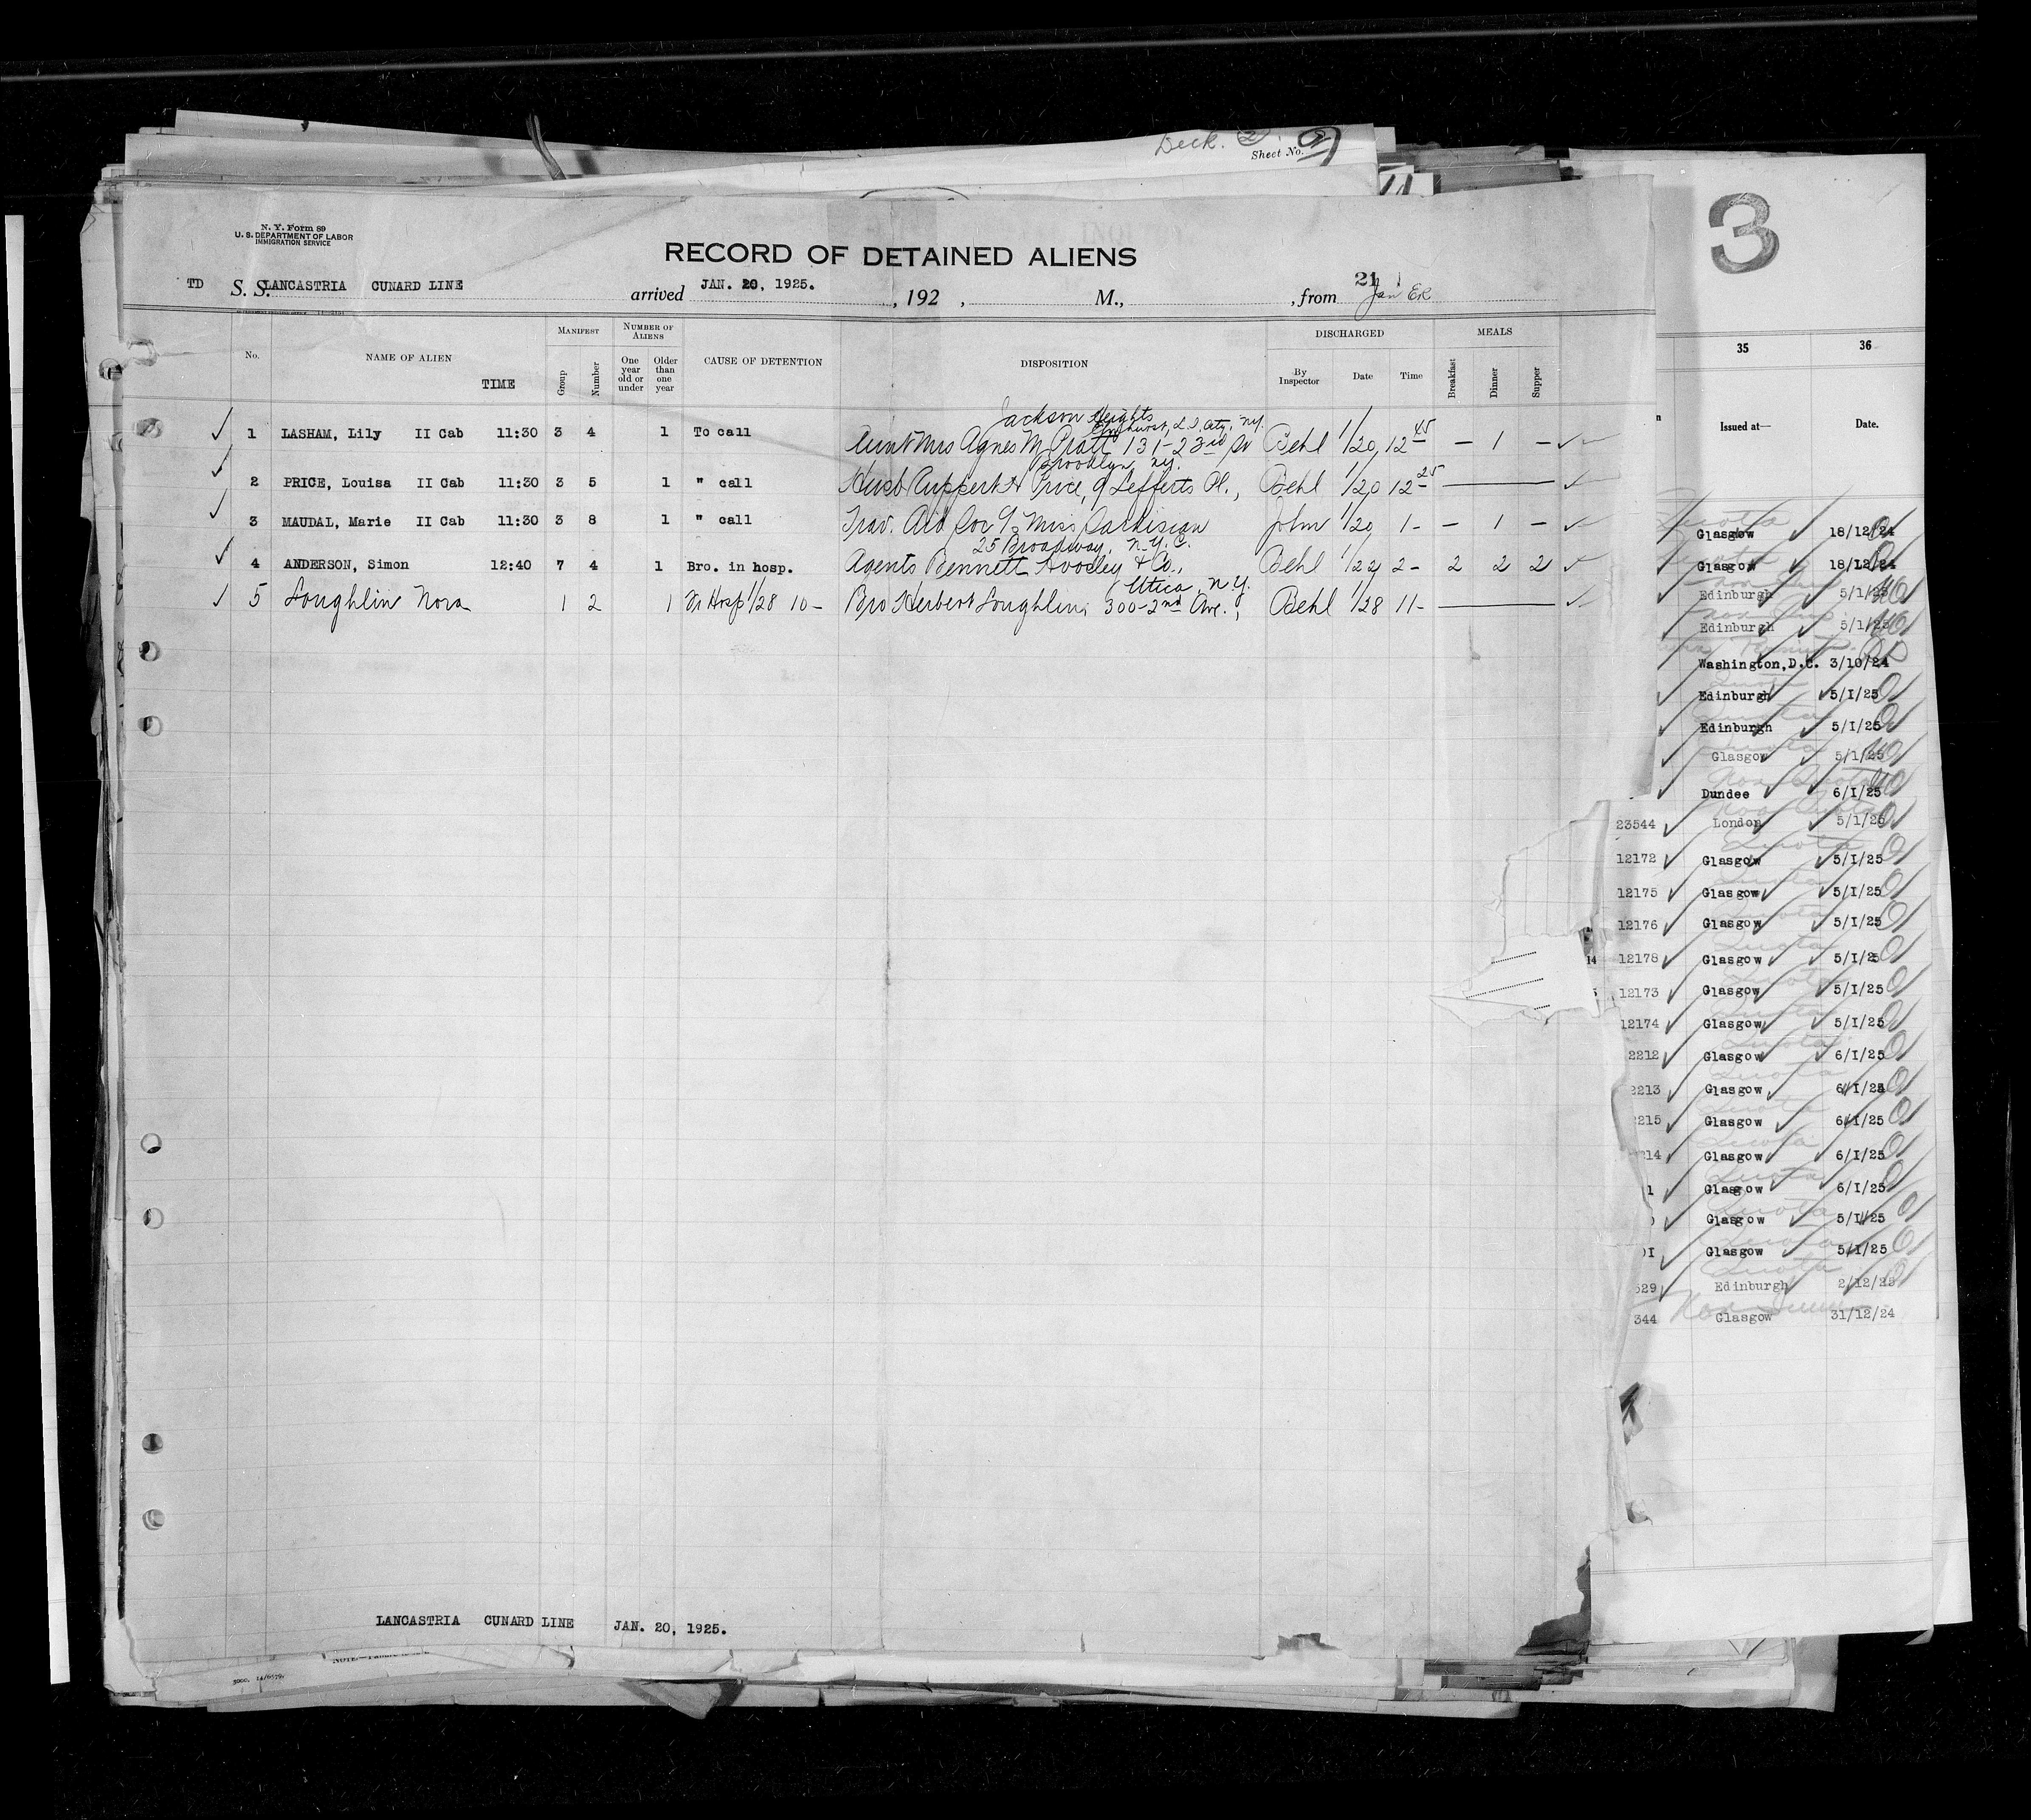 Deck. 2
Sheet No. 2
3
N. Y. Form 89
U. S. DEPARTMENT OF LABOR
IMMIGRATION SERVICE
RECORD OF DETAINED ALIENS
TD S. S. LANCASTRIA CUNARD LINE arrived JAN. 20, 1925. , 192 , M., , from 21 Jan ER
No. NAME OF ALIEN TIME MANIFEST Group Number NUMBER OF ALIENS One year old or under Older than one year CAUSE OF DETENTION DISPOSITION DISCHARGED By Inspector Date Time MEALS Breakfast Dinner Supper
Jackson Heights
Elmhurst, L.I. City, N.Y.
1 LASHAM, Lily II Cab 11:30 3 4 1 To call Aunt Mrs Agnes M Pratt 131-23rd St Behl 1/20 12 45 – 1 –
Brooklyn, N.Y.
2 PRICE, Louisa II Cab 11:30 3 5 1 " call Husb Ruppert H Price, 9 Lefferts Pl., Behl 1/20 12 25
3 MAUDAL, Marie II Cab 11:30 3 8 1 " call Trav. Aid Soc % Miss John 1/20 1- – 1 –
25 Broadway, N.Y.C.
4 ANDERSON, Simon 12:40 7 4 1 Bro. in hosp. Agents Bennett & Co., Behl 1/22 2- 2 2 2
Utica N.Y.
5 Loughlin Nora 1 2 1 Fr Hosp 1/28 10- Bro Herbert Loughlin, 300-2nd Ave., Behl 1/28 11-
LANCASTRIA CUNARD LINE JAN. 20, 1925.
35 36
Issued at— Date.
Glasgow 18/12/24
Glasgow 18/12/24
Edinburgh 5/1/25
Edinburgh 5/1/25
Washington, D.C. 3/10/24
Edinburgh 5/I/25
Edinburgh 5/I/25
Glasgow 5/1/25
Dundee 6/I/25
23544 London 5/1/25
12172 Glasgow 5/I/25
12175 Glasgow 5/I/25
12176 Glasgow 5/I/25
14 12178 Glasgow 5/I/25
12173 Glasgow 5/I/25
12174 Glasgow 5/I/25
2212 Glasgow 6/I/25
2213 Glasgow 6/I/25
215 Glasgow 6/I/25
14 Glasgow 6/I/25
1 Glasgow 6/I/25
Glasgow 5/I/25
I Glasgow 5/I/25
529 Edinburgh 2/12/25
344 Glasgow 31/12/24